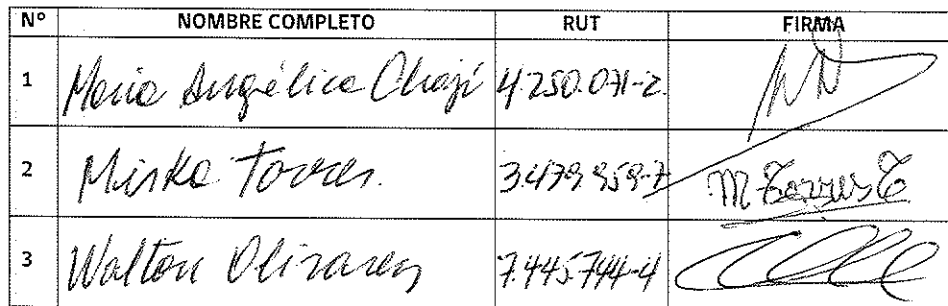 N° NOMBRE COMPLETO RUT FIRMA
1 Maria Angélica Chají 4.250.071-2
2 Miska Torres. 3.479.959-7 M Torres T
3 Walton Olivares 7.445.744-4